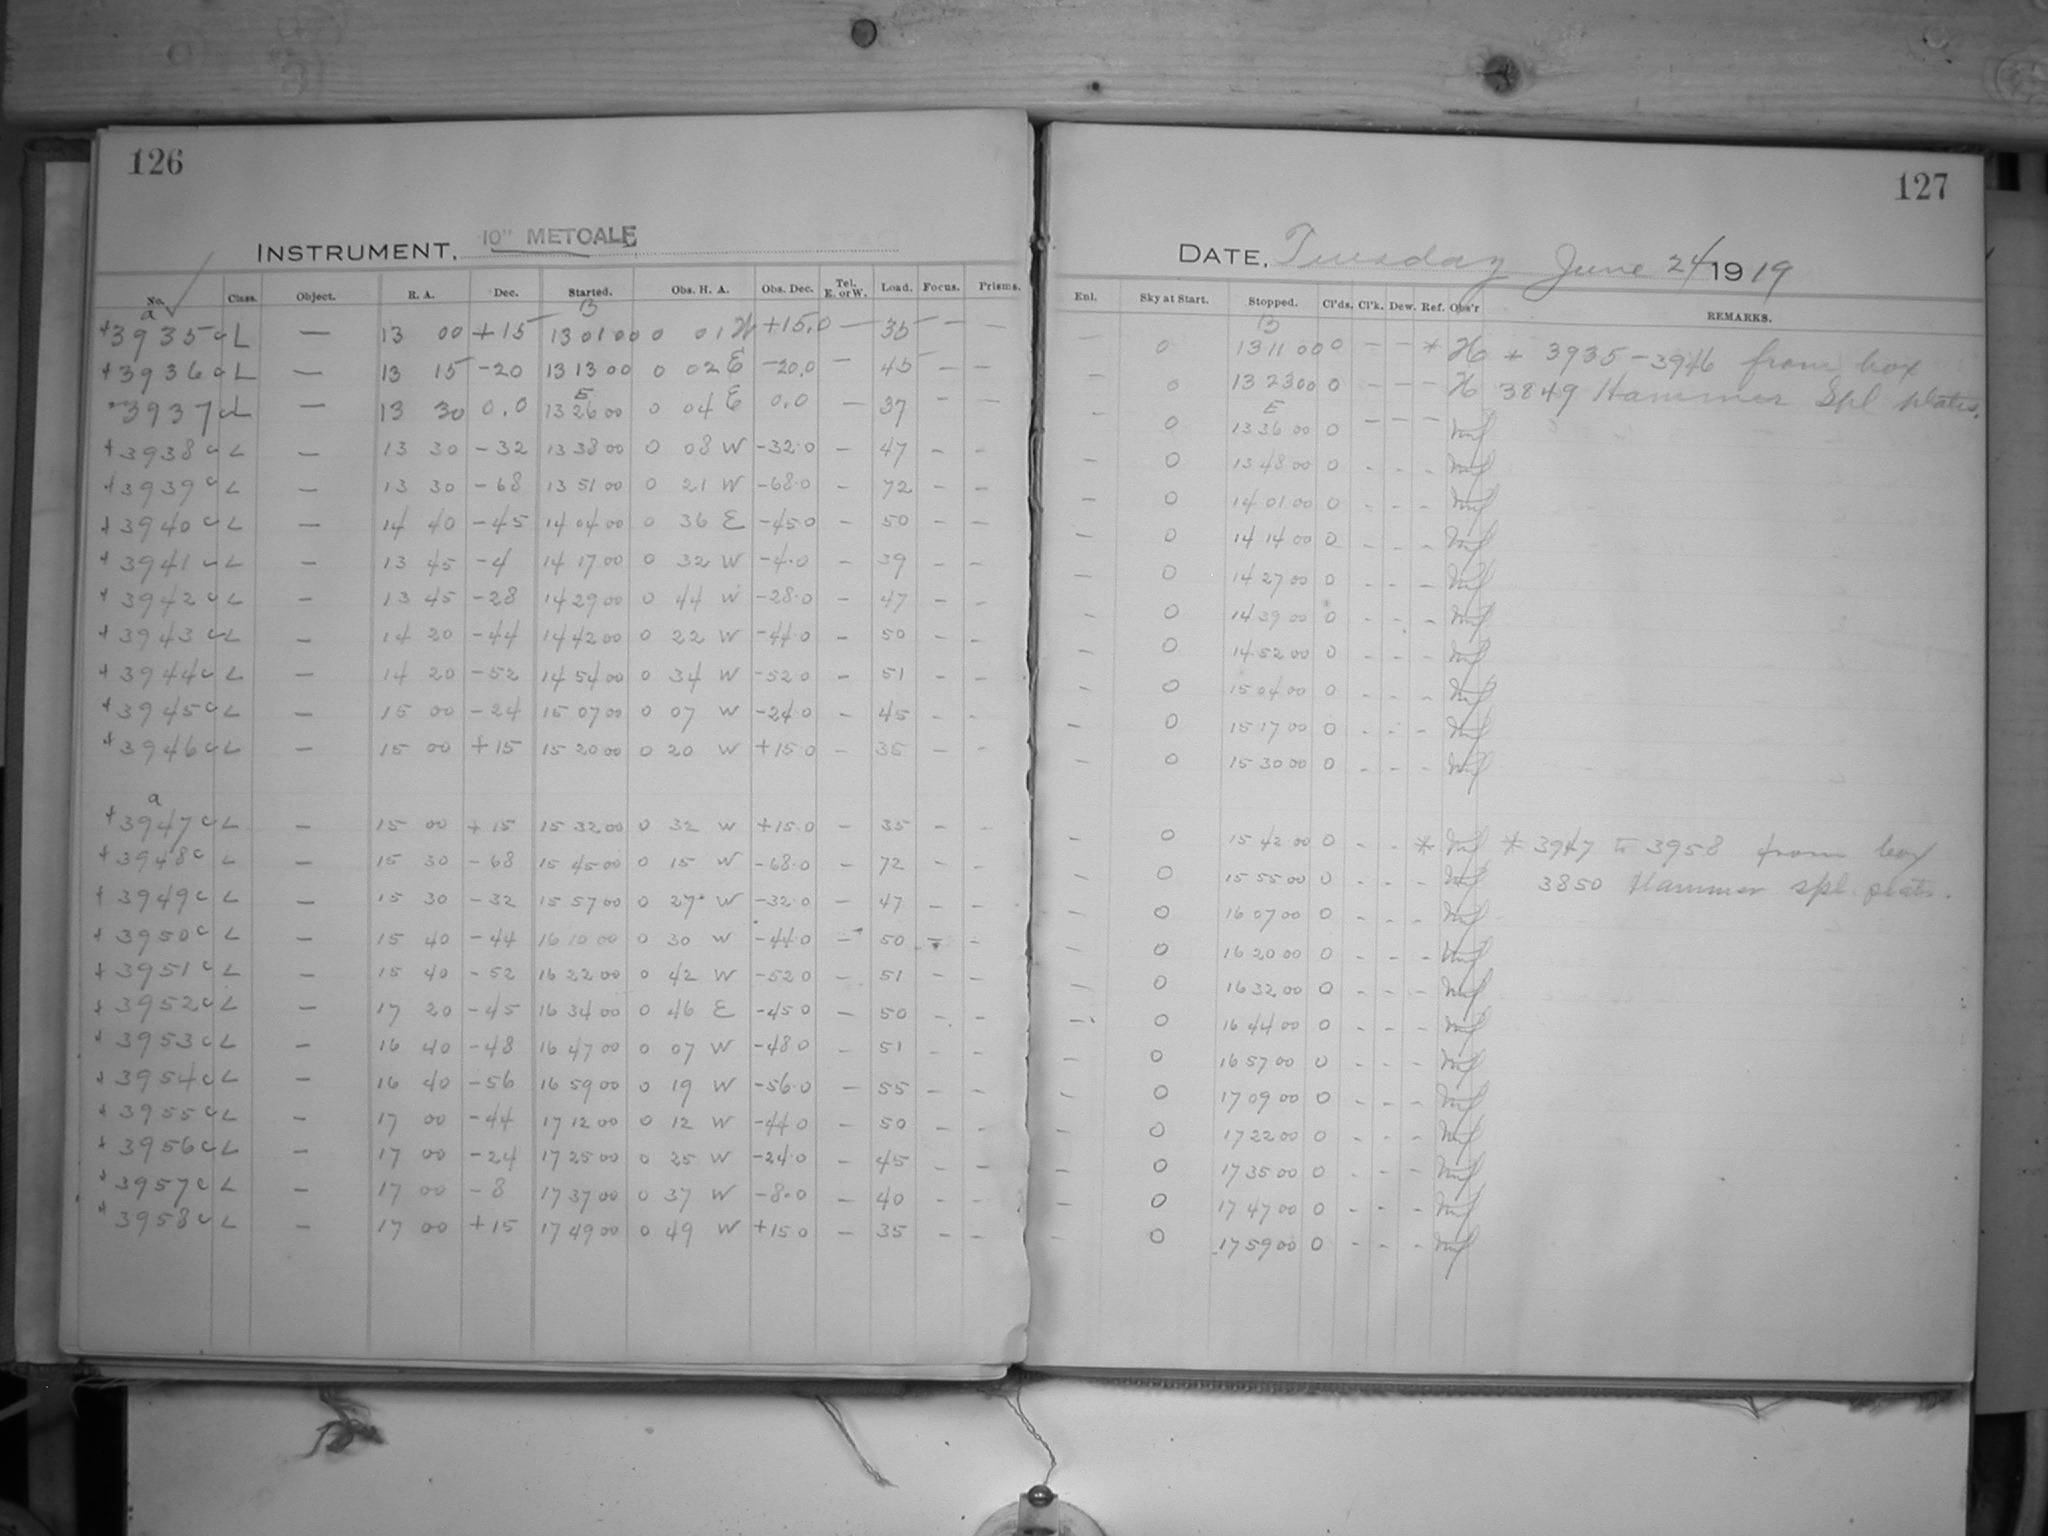 126
INSTRUMENT. 10" METCALF
No. Class. Object. R. A. Dec. Started. Obs. H. A. Obs. Dec. Tel. E. or W. Load. Focus. Prisms.
a B
+3935 c L — 13 00 +15 — 13 01 00 0 01 W +15.0 — 35 — —
+3936 c L — 13 15 -20 13 13 00 0 02 E -20.0 — 45 — —
E
3937 c L — 13 30 0.0 13 26 00 0 04 E 0.0 — 37 — —
+3938 c L — 13 30 -32 13 38 00 0 08 W -32.0 — 47 — —
+3939 c L — 13 30 -68 13 51 00 0 21 W -68.0 — 72 — —
+3940 c L — 14 40 -45 14 04 00 0 36 E -45.0 — 50 — —
+3941 c L — 13 45 -4 14 17 00 0 32 W -4.0 — 39 — —
+3942 c L — 13 45 -28 14 29 00 0 44 W -28.0 — 47 — —
+3943 c L — 14 20 -44 14 42 00 0 22 W -44.0 — 50 — —
+3944 c L — 14 20 -52 14 54 00 0 34 W -52.0 — 51 — —
+3945 c L — 15 00 -24 15 07 00 0 07 W -24.0 — 45 — —
+3946 c L — 15 00 +15 15 20 00 0 20 W +15.0 — 35 — —
a
+3947 c L — 15 00 +15 15 32 00 0 32 W +15.0 — 35 — —
+3948 c L — 15 30 -68 15 45 00 0 15 W -68.0 — 72 — —
+3949 c L — 15 30 -32 15 57 00 0 27 W -32.0 — 47 — —
+3950 c L — 15 40 -44 16 10 00 0 30 W -44.0 — 50 — —
+3951 c L — 15 40 -52 16 22 00 0 42 W -52.0 — 51 — —
+3952 c L — 17 20 -45 16 34 00 0 46 E -45.0 — 50 — —
+3953 c L — 16 40 -48 16 47 00 0 07 W -48.0 — 51 — —
+3954 c L — 16 40 -56 16 59 00 0 19 W -56.0 — 55 — —
+3955 c L — 17 00 -44 17 12 00 0 12 W -44.0 — 50 — —
+3956 c L — 17 00 -24 17 25 00 0 25 W -24.0 — 45 — —
+3957 c L — 17 00 -8 17 37 00 0 37 W -8.0 — 40 — —
+3958 c L — 17 00 +15 17 49 00 0 49 W +15.0 — 35 — —
127
DATE. Tuesday June 24 1919
Enl. Sky at Start. Stopped. Cl'ds. Cl'k. Dew. Ref. Obs'r REMARKS.
B
— 0 13 11 00 0 — — * H * 3935-3946 from box
— 0 13 23 00 0 — — — H 3849 Hammer Spl plates.
E
— 0 13 36 00 0 — — —
— 0 13 48 00 0 - - -
— 0 14 01 00 0 - - -
— 0 14 14 00 0 - - -
— 0 14 27 00 0 - - -
— 0 14 39 00 0 - - -
— 0 14 52 00 0 - - -
— 0 15 04 00 0 - - -
— 0 15 17 00 0 - - -
— 0 15 30 00 0 - - -
— 0 15 42 00 0 - - * * 3947 to 3958 from box
— 0 15 55 00 0 - - - 3850 Hammer spl plates.
— 0 16 07 00 0 - - -
— 0 16 20 00 0 - - -
— 0 16 32 00 0 - - -
— 0 16 44 00 0 - - -
— 0 16 57 00 0 - - -
— 0 17 09 00 0 - - -
— 0 17 22 00 0 - - -
— 0 17 35 00 0 - - -
— 0 17 47 00 0 - - -
— 0 17 59 00 0 - - -